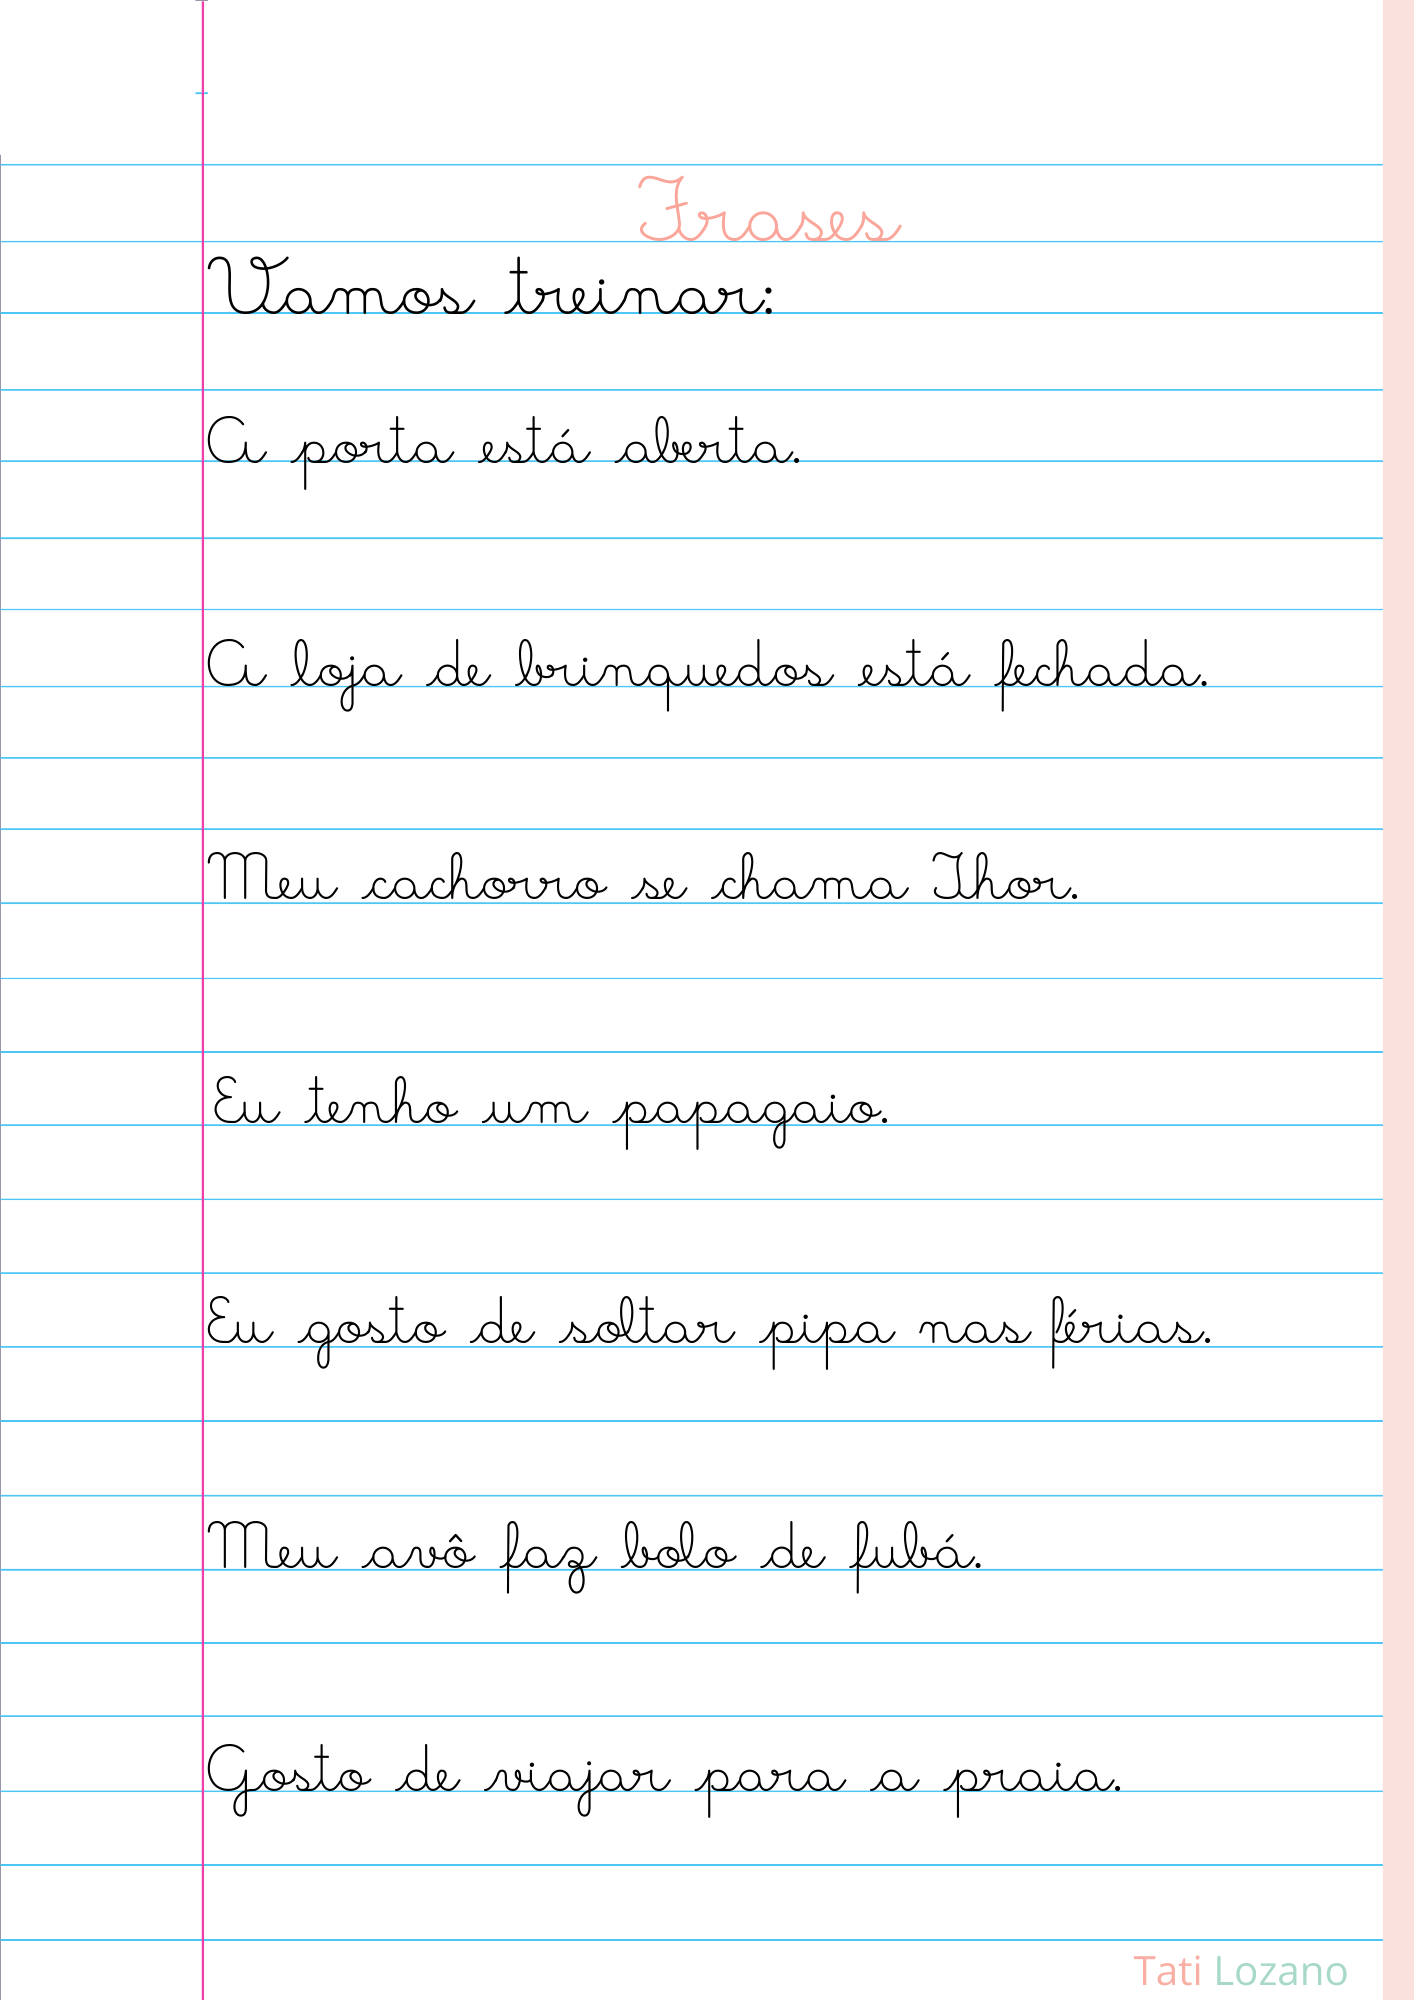 Frases
Vamos treinar:
A porta está aberta.
A loja de brinquedos está fechada.
Meu cachorro se chama Thor.
Eu tenho um papagaio.
Eu gosto de soltar pipa nas férias.
Meu avô faz bolo de fubá.
Gosto de viajar para a praia.
Tati Lozano